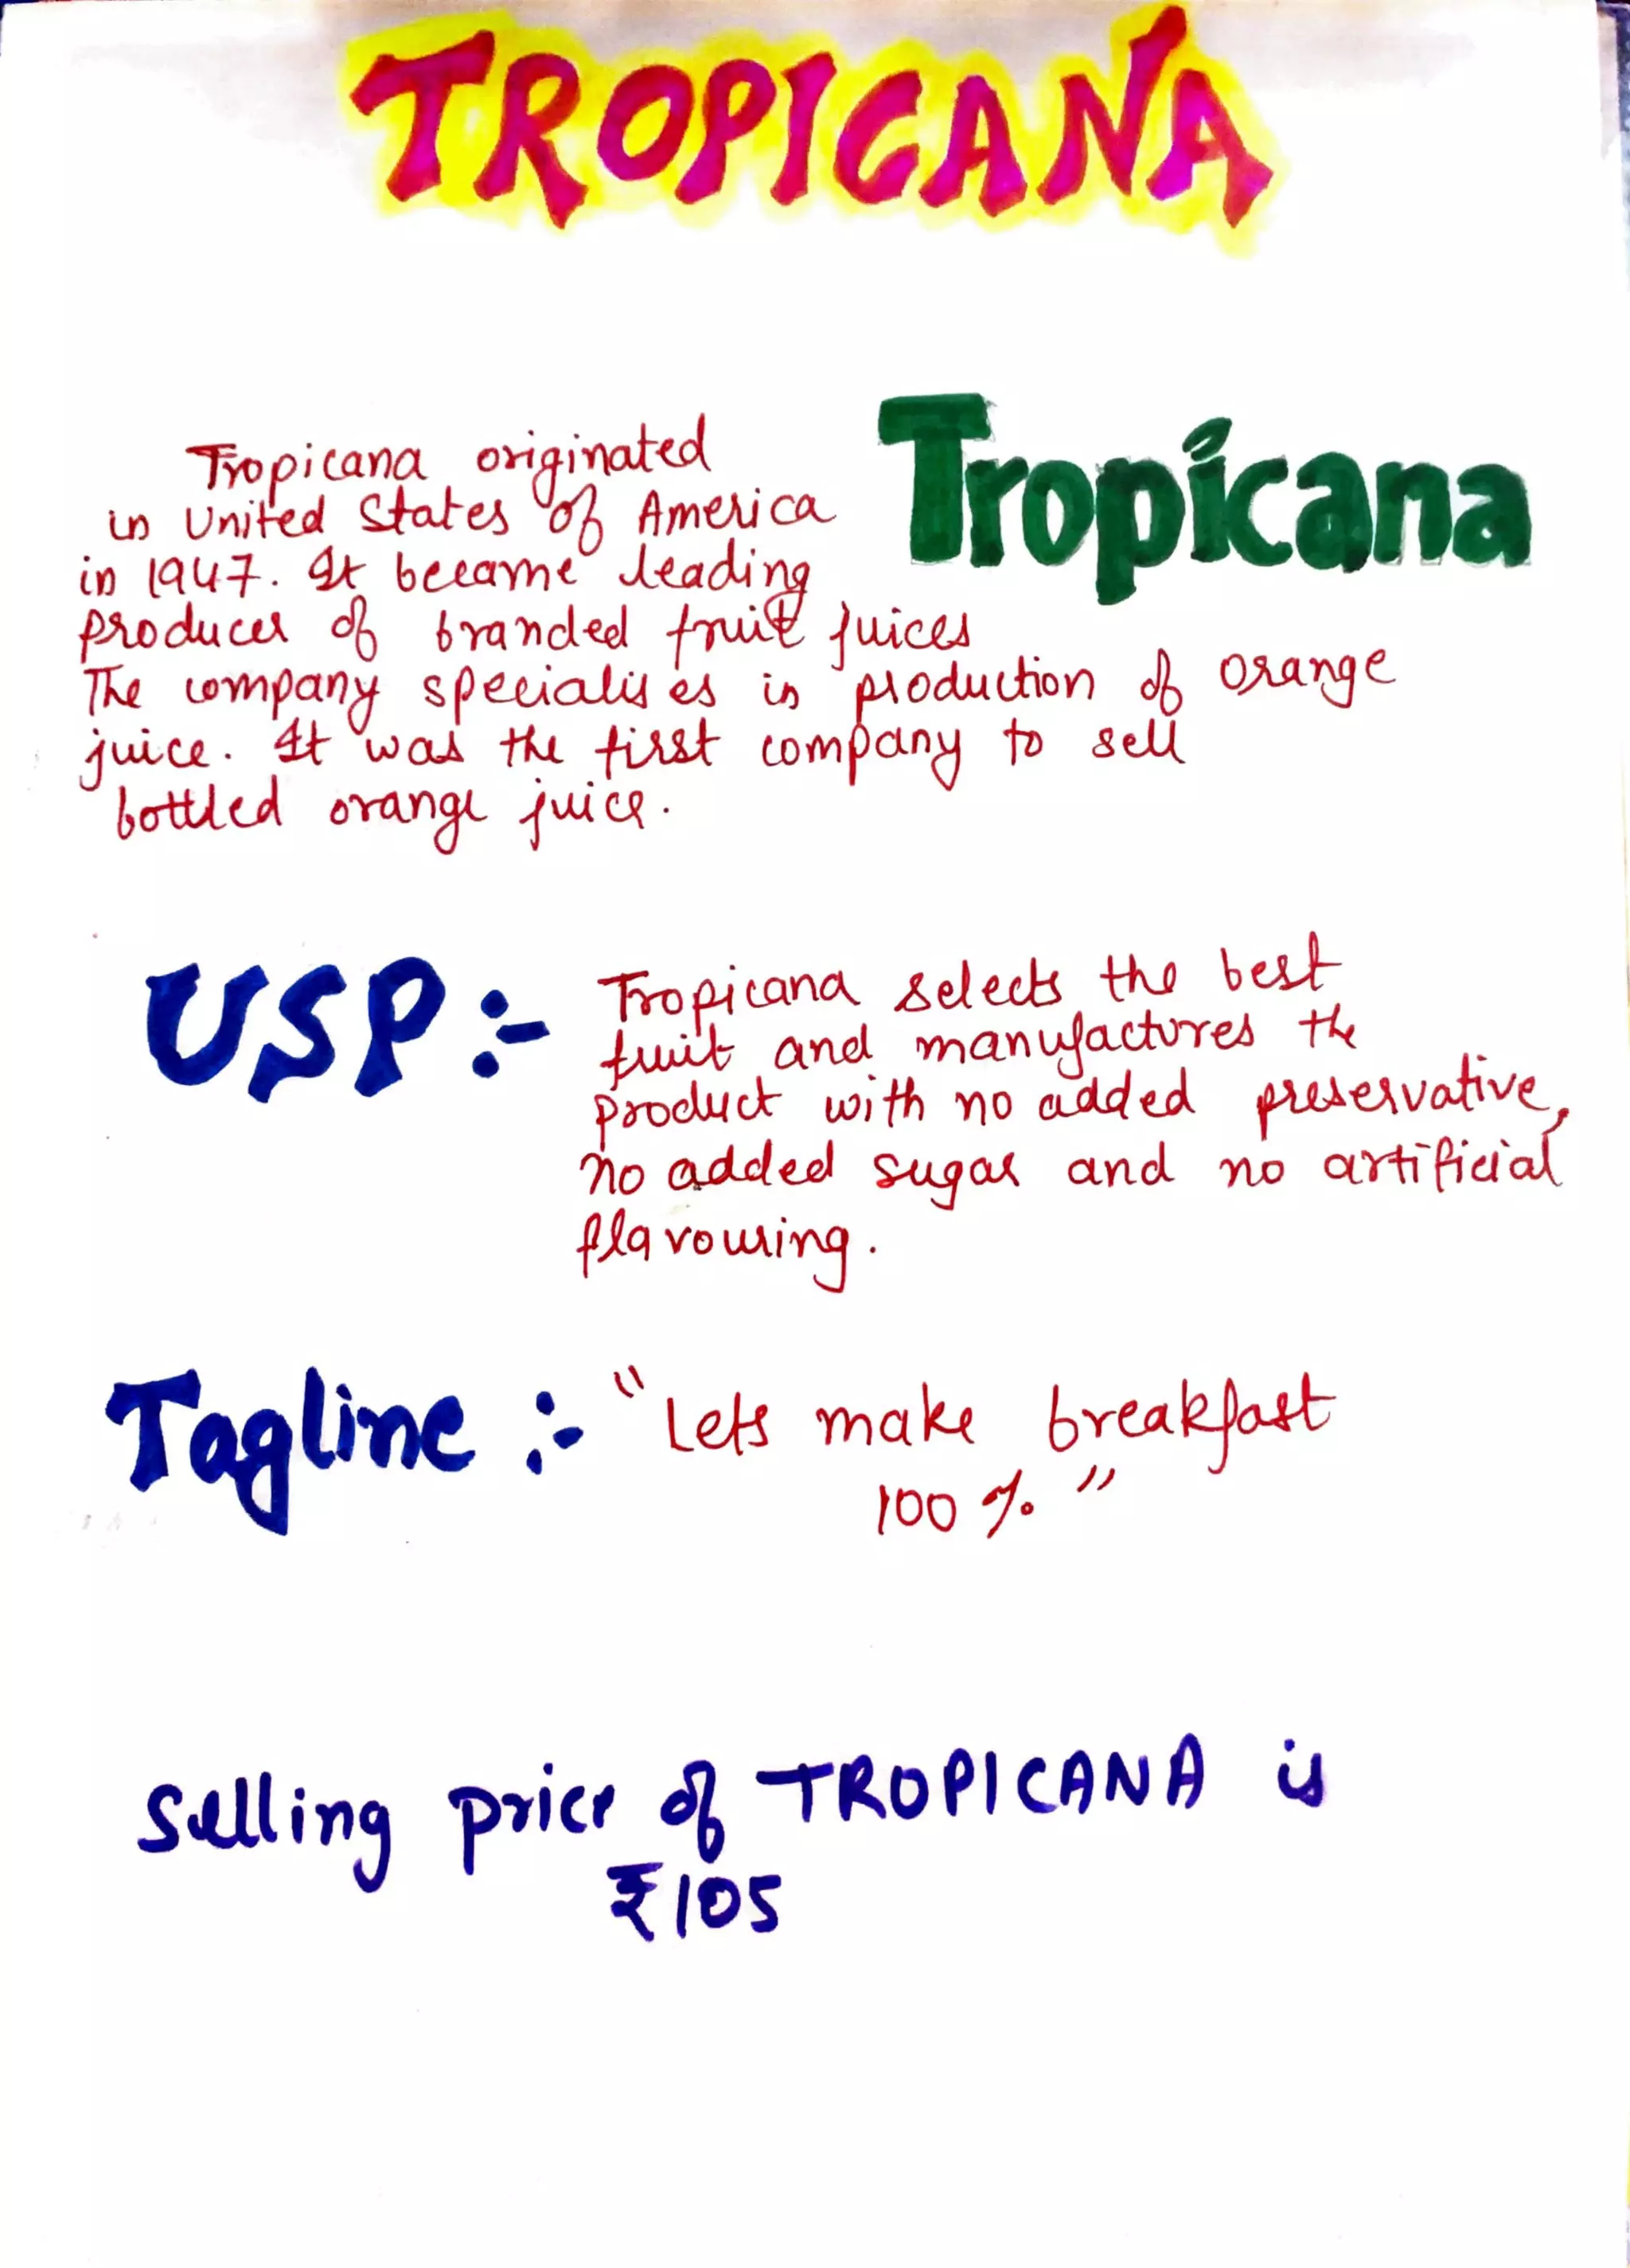 TROPICANA
Tropicana
Tropicana originated
in United States of America
in 1947. It became leading
producer of branded fruit juices
The company specialises in production of orange
juice. It was the first company to sell
bottled orange juice.
USP:-
Tropicana selects the best
fruit and manufactures the
product with no added preservative,
no added sugar and no artificial
flavouring.
Tagline :- "Lets make breakfast
100 %."
Selling price of TROPICANA is
₹105